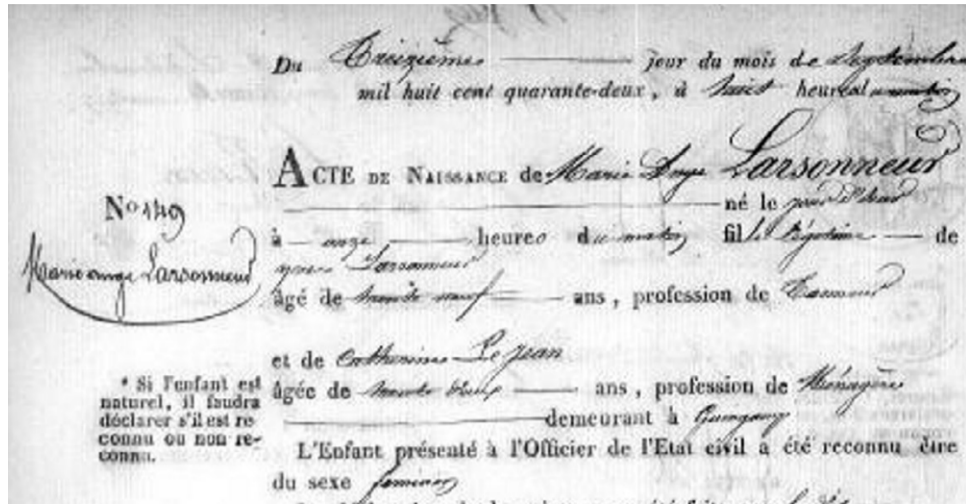 Du Treizième jour du mois de Septembre
mil huit cent quarante-deux, à huit heures du matin
ACTE DE NAISSANCE de Marie Ange Larsonneur
né le jour d'hier
à onze heures du matin fille légitime de
yves Larsonneur
âgé de trente neuf ans, profession de Tanneur
et de Catherine Le Jean
âgée de trente deux ans, profession de Ménagère
demeurant à Guingamp
L'Enfant présenté à l'Officier de l'Etat civil a été reconnu être
du sexe féminin
No 149
Marie ange Larsonneur
* Si l'enfant est
naturel, il faudra
déclarer s'il est re-
connu ou non re-
connu.